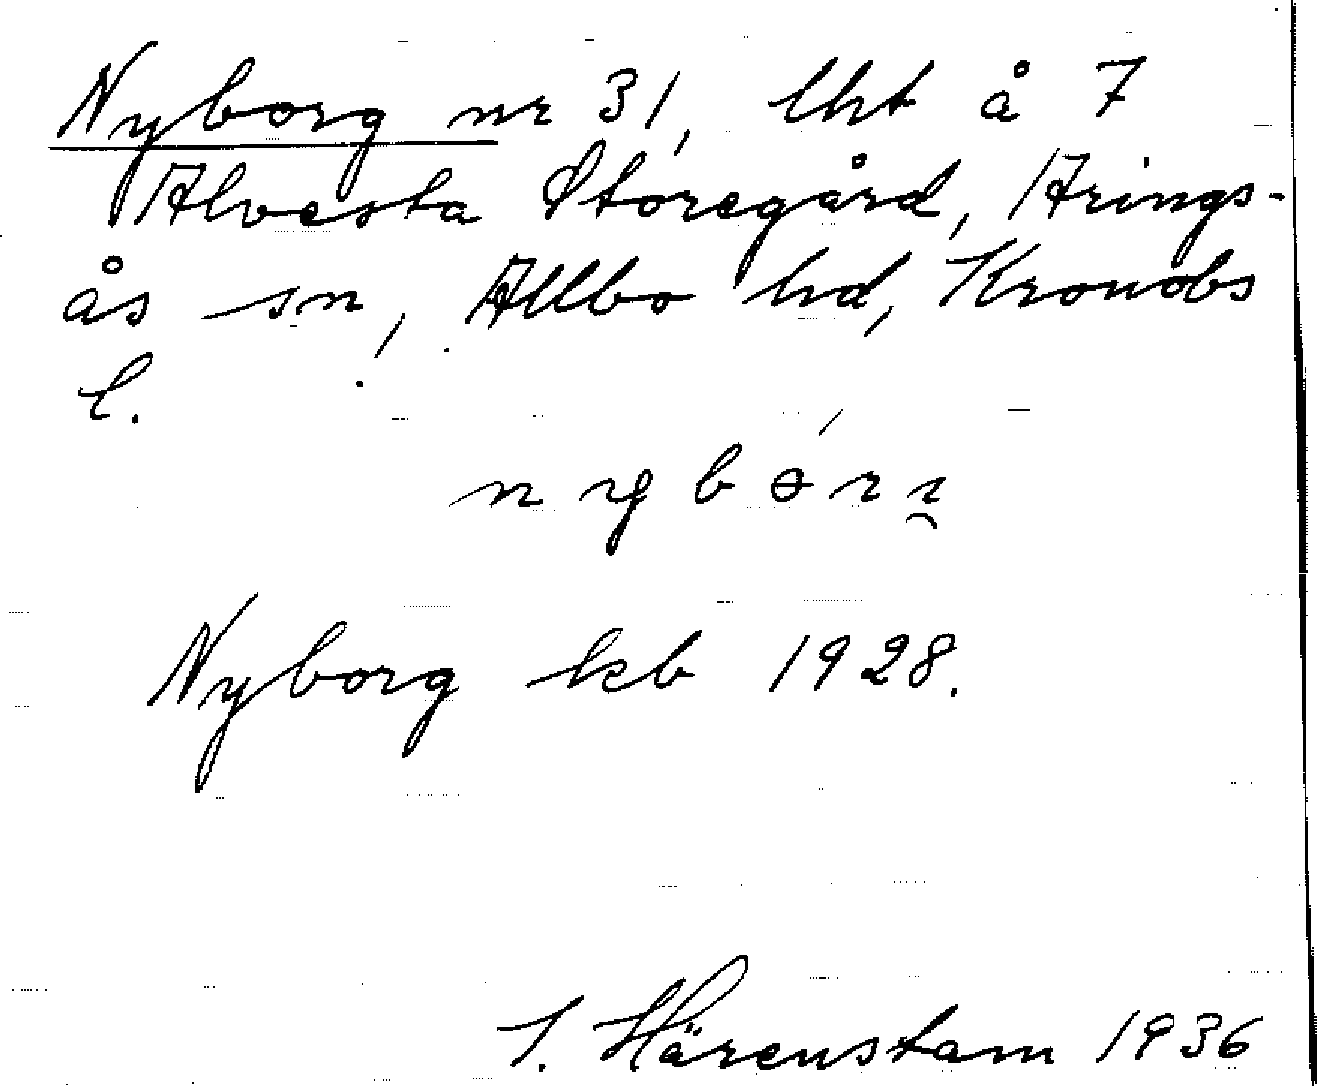 Nyborg nr 31, lht å 7
Alvesta Storegård, Arings-
ås sn, Allbo hd, Kronobs
l.
Nyborg kb 1928.
Härenstam 1936